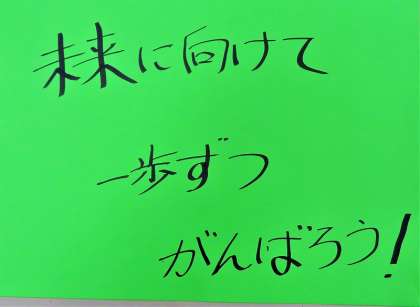 未来に向けて
一歩ずつ
がんばろう!